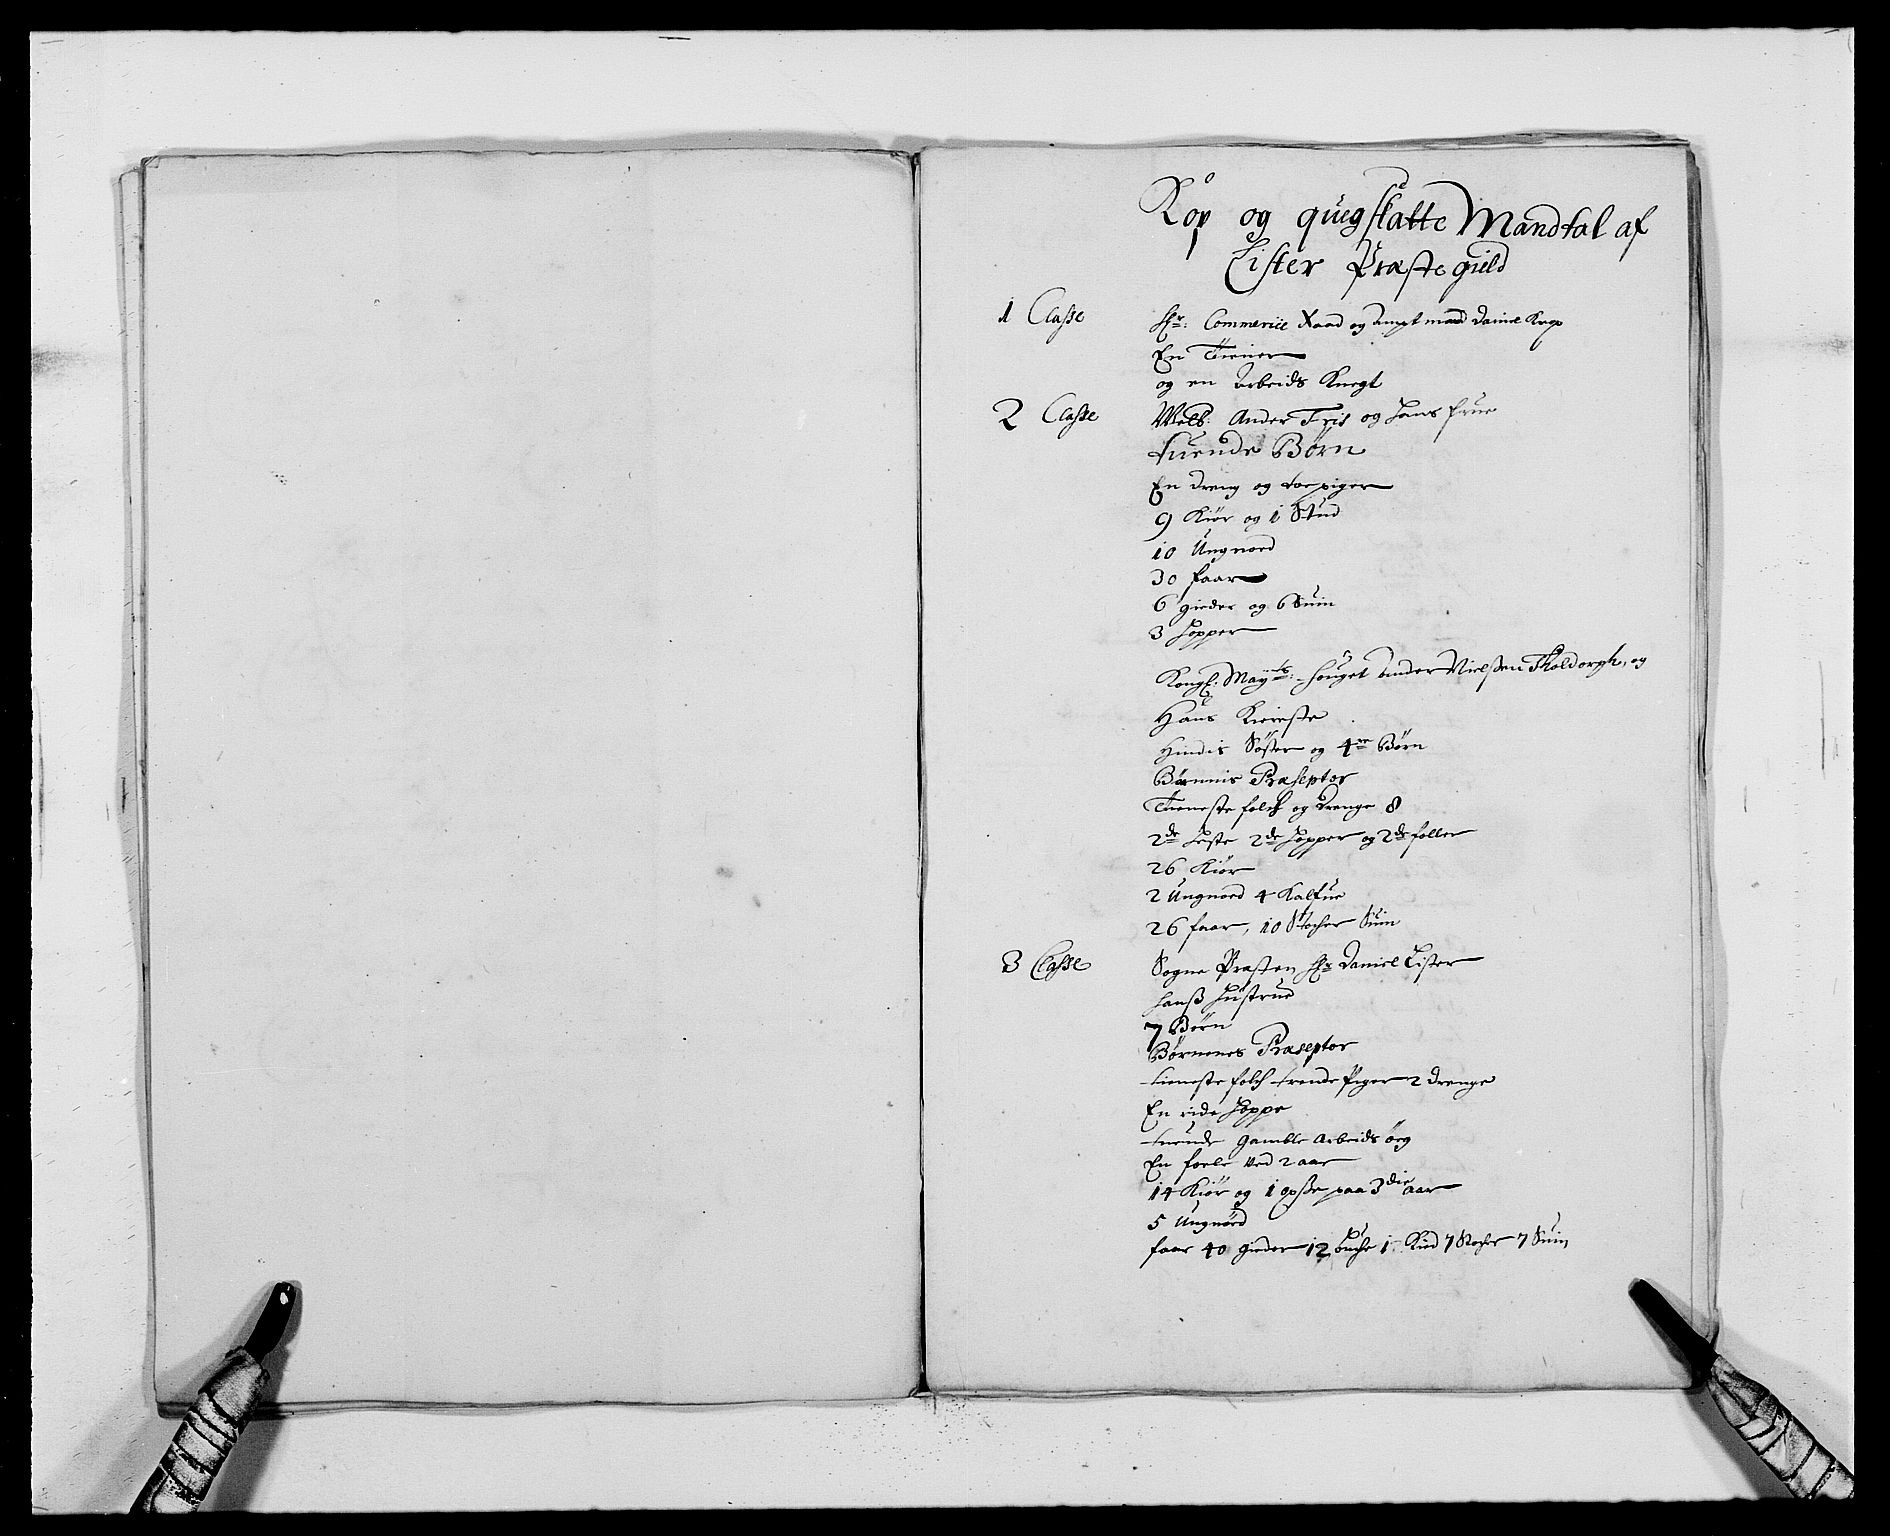 Kop og quegskatte Mandtal af
Lister Præstegield
1 Classe
Hr: Commercie Raad og Amptmand Daniel Knop
En Tiener
og en arbeids Knegt
2 Classe
Welb: Ander Friis og Hans frue
tuende Børn
En dreng og toe piger
9 Kiør og 1 Stud
10 Ungnød
30 faar
6 gieder og 6 Suin
3 Hopper
Kongl: Mayts: fouget Ander Nielssen Tholdorph, og
Hans Kiereste
Hindis Søster og 4re Børn
Børnnis Præseptor
Tieneste folch og drenge 8
2de Heste 2de Hopper og 2de foller
26 Kiør
2 Ungnød 4 Kalfue
26 faar, 10 Stocher Suin
3 Classe
Sogne Præsten Hr Daniel Lister
Hanss Hustrue
7 Børn
Børnenes Præseptor
tieneste folch trende Piger 2 drenge
En ride Hoppe
tuende gamble arbeids øeg
En foele ved 2 aar
14 Kiør og 1 oxse paa 3die aar
5 Ungnød
faar 40 gieder 12 buche 1 Kid 7 Stocher 7 Suin